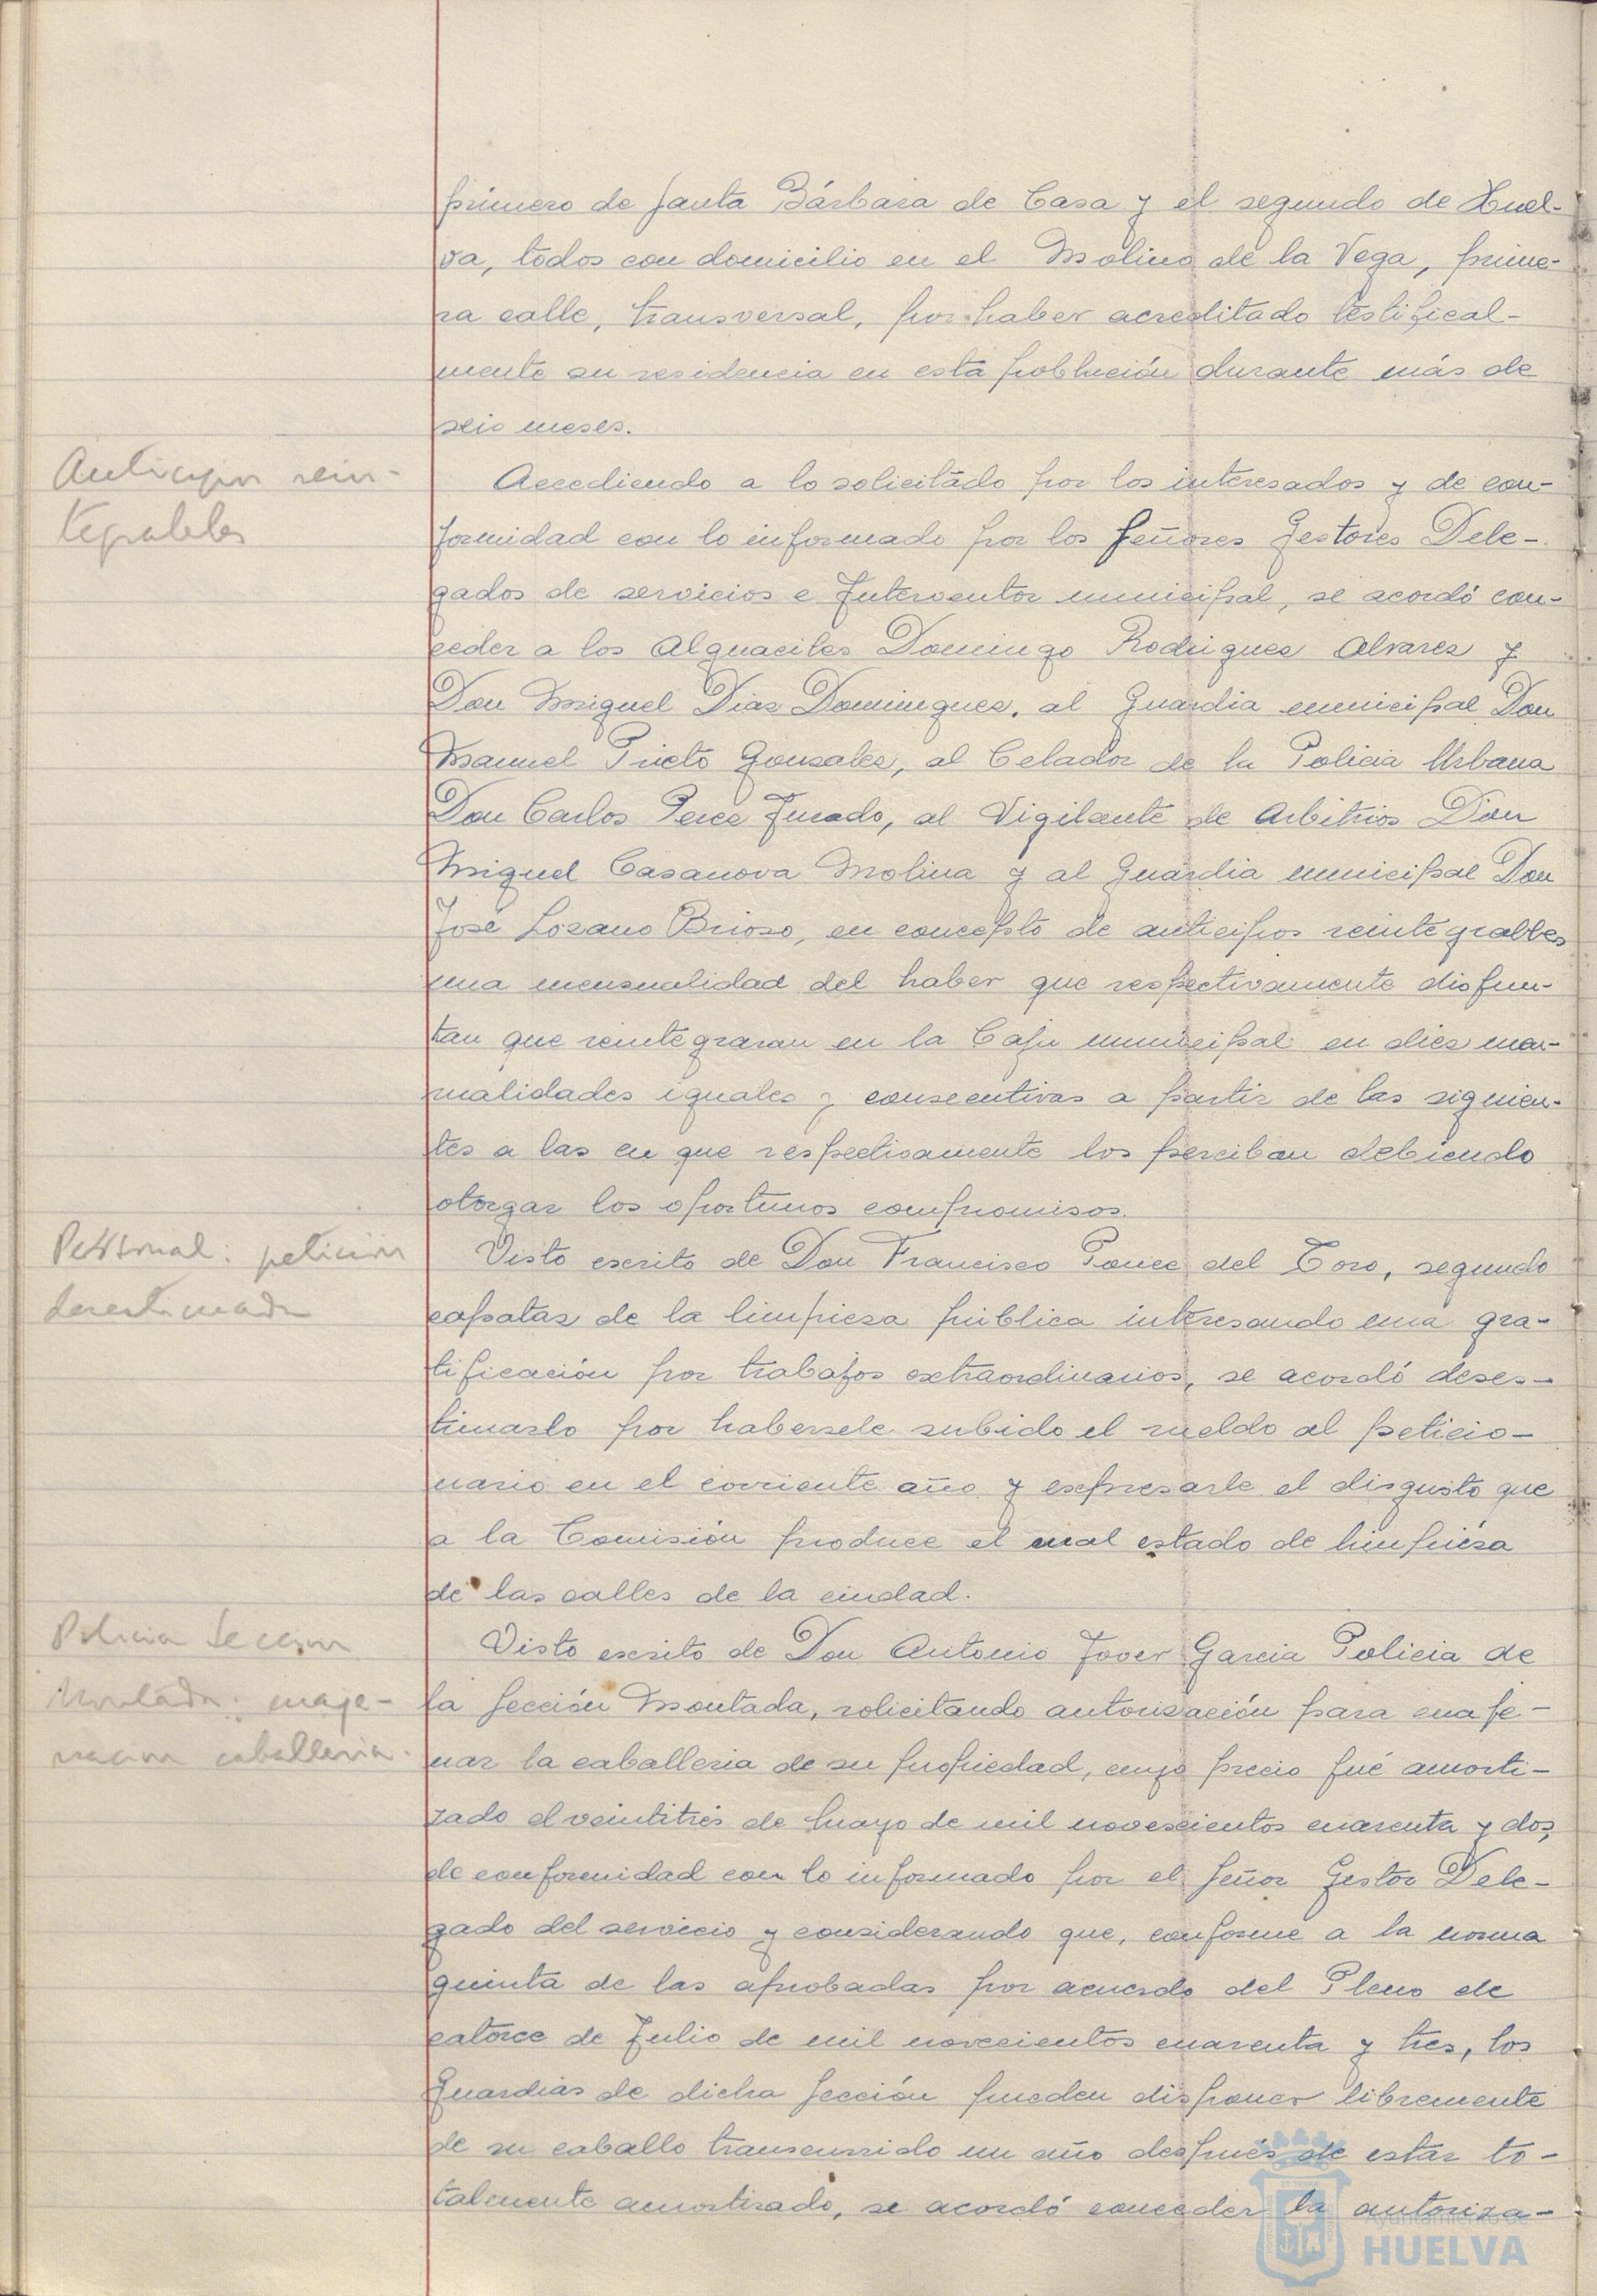 primero de Santa Bárbara de Casa y el segundo de Huel-
va, todos con domicilio en el Molino de la Vega, prime-
ra calle, transversal, por haber acreditado testifical-
mente su residencia en esta población durante más de
seis meses.
Anticipos rein-
tegrables
Accediendo a lo solicitado por los interesados y de con-
formidad con lo informado por los Señores Gestores Dele-
gados de servicios e Interventor municipal, se acordó con-
ceder a los Alguaciles Domingo Rodriguez Alvarez y
Don Miguel Diaz Dominguez, al Guardia municipal Don
Manuel Prieto Gonzalez, al Celador de la Policia Urbana
Don Carlos Perez Jurado, al Vigilante de Arbitrios Don
Miguel Casanova Molina y al Guardia municipal Don
José Lozano Brioso, en concepto de anticipos reintegrables
una mensualidad del haber que respectivamente disfru-
tan que reintegraran en la Caja municipal en diez men-
sualidades iguales y consecutivas a partir de las siguien-
tes a las en que respectivamente los perciban debiendo
otorgar los oportunos compromisos.
Personal: petición
desestimada
Visto escrito de Don Francisco Ponce del Toro, segundo
capataz de la limpieza pública interesando una gra-
tificación por trabajos extraordinarios, se acordó deses-
timarlo por habersele subido el sueldo al peticio-
nario en el corriente año y expresarle el disgusto que
a la Comisión produce el mal estado de limpieza
de las calles de la ciudad.
Policia Seccion
Montada: enaje-
nacion caballeria.
Visto escrito de Don Antonio Jover Garcia Policia de
la Sección Montada, solicitando autorización para enaje-
nar la caballeria de su propiedad, cuyo precio fué amorti-
zado el veintitrés de Mayo de mil novecientos cuarenta y dos,
de conformidad con lo informado por el Señor Gestor Dele-
gado del servicio y considerando que, conforme a la norma
quinta de las aprobadas por acuerdo del Pleno de
catorce de Julio de mil novecientos cuarenta y tres, los
Guardias de dicha Sección pueden disponer libremente
de su caballo transcurrido un año después de estar to-
talmente amortizado, se acordó conceder la autoriza-
Ayuntamiento de
HUELVA